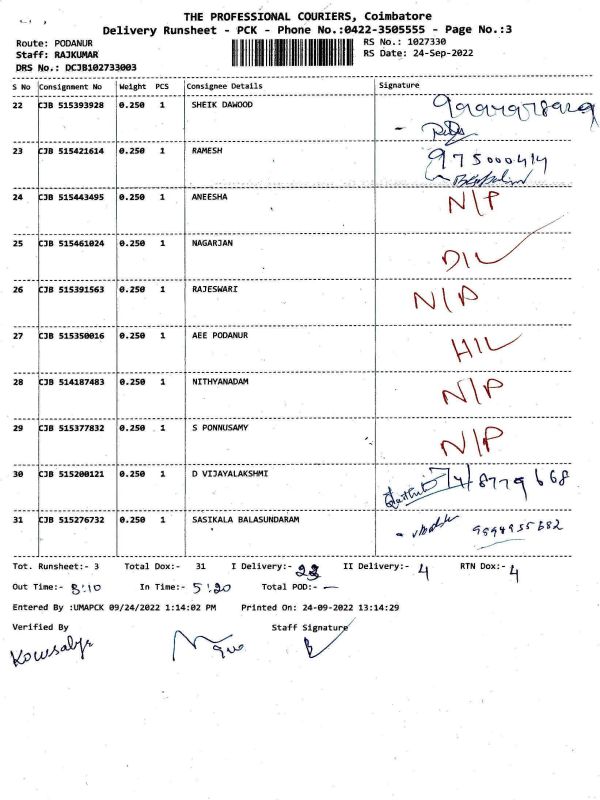 THE PROFESSIONAL COURIERS, Coimbatore
Delivery Runsheet - PCK - Phone No.:0422-3505555 - Page No.:3
Route: PODANUR
RS No.: 1027330
Staff: RAJKUMAR
RS Date: 24-Sep-2022
DRS No.: DCJB102733003
S No Consignment No Weight PCS Consignee Details Signature
22 CJB 515393928 0.250 1 SHEIK DAWOOD
23 CJB 515421614 0.250 1 RAMESH 975000414
24 CJB 515443495 0.250 1 ANEESHA N/P
25 CJB 515461024 0.250 1 NAGARJAN D/L
26 CJB 515391563 0.250 1 RAJESWARI N/P
27 CJB 515350016 0.250 1 AEE PODANUR H/L
28 CJB 514187483 0.250 1 NITHYANADAM N/P
29 CJB 515377832 0.250 1 S PONNUSAMY N/P
30 CJB 515200121 0.250 1 D VIJAYALAKSHMI
31 CJB 515276732 0.250 1 SASIKALA BALASUNDARAM 9894955682
Tot. Runsheet:- 3 Total Dox:- 31 I Delivery:- 23 II Delivery:- 4 RTN Dox:- 4
Out Time:- 3:10 In Time:- 5:20 Total POD:- —
Entered By :UMAPCK 09/24/2022 1:14:02 PM Printed On: 24-09-2022 13:14:29
Verified By Staff Signature
Kowsalya